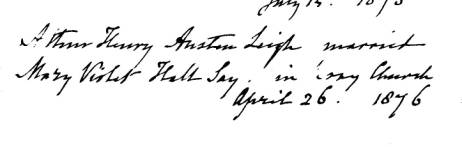 July
Arthur Henry Austen Leigh married
Mary Violet Hall Say. in Bray Church
April 26. 1876